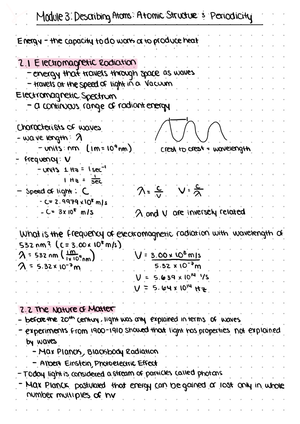 Module 3: Describing Atoms: Atomic Structure & Periodicity
Energy - the capacity to do work or to produce heat
2.1 Electromagnetic Radiation
- energy that travels through space as waves
- travels at the speed of light in a vacuum
Electromagnetic Spectrum
- a continuous range of radiant energy
Characteristics of waves
- wave length: λ
- units: nm (1m = 10⁹ nm)
crest to crest = wavelength
- frequency: ν
- units 1 Hz = 1 sec⁻¹
1 Hz = 1/sec
- Speed of light: C
λ = c/ν  ν = c/λ
- C = 2.9979 x10⁸ m/s
- C = 3x10⁸ m/s
λ and ν are inversely related
What is the frequency of electromagnetic radiation with wavelength of
532 nm? (c = 3.00 x 10⁸ m/s)
λ = 532 nm (1m / 1x10⁹ nm)
ν = 3.00 x 10⁸ m/s / 5.32 x 10⁻⁷ m
λ = 5.32 x 10⁻⁷ m
ν = 5.639 x10¹⁴ 1/s
ν = 5.64 x10¹⁴ Hz
2.2 The Nature of Matter
- before the 20th century, light was only explained in terms of waves
- experiments from 1900-1910 showed that light has properties not explained
by waves
- Max Planck, Blackbody Radiation
- Albert Einstein, Photoelectric Effect
- Today light is considered a stream of particles called photons
- Max Planck postulated that energy can be gained or lost only in whole
number multiples of hν